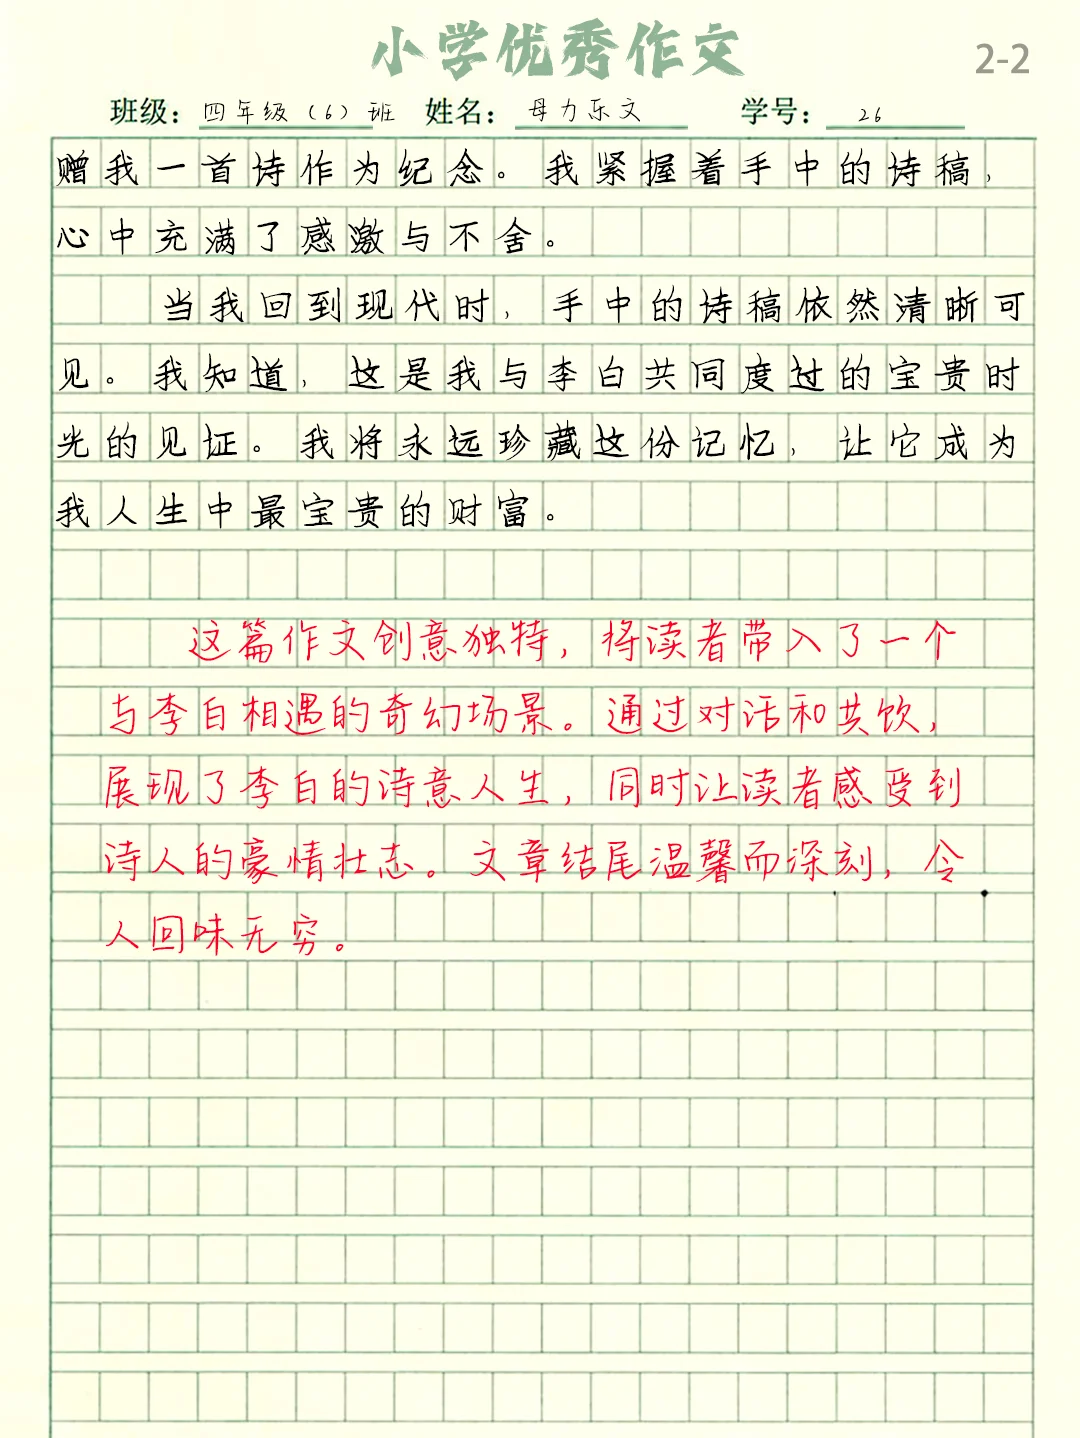 小学优秀作文
2-2
班级：四年级（6）班 姓名：母力乐文 学号：26
赠我一首诗作为纪念。我紧握着手中的诗稿，
心中充满了感激与不舍。
当我回到现代时，手中的诗稿依然清晰可
见。我知道，这是我与李白共同度过的宝贵时
光的见证。我将永远珍藏这份记忆，让它成为
我人生中最宝贵的财富。
这篇作文创意独特，将读者带入了一个
与李白相遇的奇幻场景。通过对话和共饮，
展现了李白的诗意人生，同时让读者感受到
诗人的豪情壮志。文章结尾温馨而深刻，令
人回味无穷。